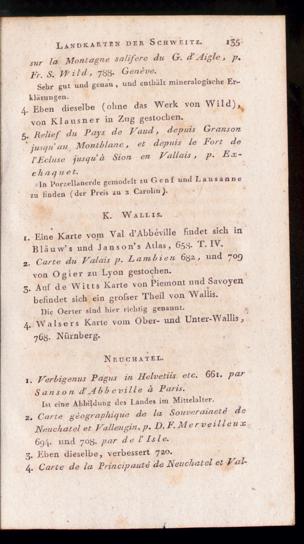 Landkarten der Schweitz. 135
sur la Montagne salifere du G. d'Aigle, p.
Fr. S. Wild, 788. Genève.
Sehr gut und genau, und enthält mineralogische Er-
klärungen.
4. Eben dieselbe (ohne das Werk von Wild),
von Klausner in Zug gestochen.
5. Relief du Pays de Vaud, depuis Granson
jusqu'au Montblanc, et depuis le Fort de
l'Ecluse jusqu'à Sion en Vallais, p. Ex-
chaquet.
In Porzellanerde gemodelt zu Genf und Lausanne
zu finden (der Preis zu 2 Carolin).
K. Wallis.
1. Eine Karte vom Val d'Abbéville findet sich in
Bläuw's und Janson's Atlas, 658. T. IV.
2. Carte du Valais p. Lambien 682, und 709
von Ogier zu Lyon gestochen.
3. Auf de Witts Karte von Piemont und Savoyen
befindet sich ein großer Theil von Wallis.
Die Oerter sind hier richtig genannt.
4. Walsers Karte vom Ober- und Unter-Wallis,
768. Nürnberg.
Neuchatel.
1. Verbigenus Pagus in Helvetiis etc. 661. par
Sanson d'Abbeville à Paris.
Ist eine Abbildung des Landes im Mittelalter.
2. Carte géographique de la Souveraineté de
Neuchatel et Valleugin, p. D. F. Merveilleux
694. und 708. par de l'Isle.
3. Eben dieselbe, verbessert 720.
4. Carte de la Principauté de Neuchatel et Val-